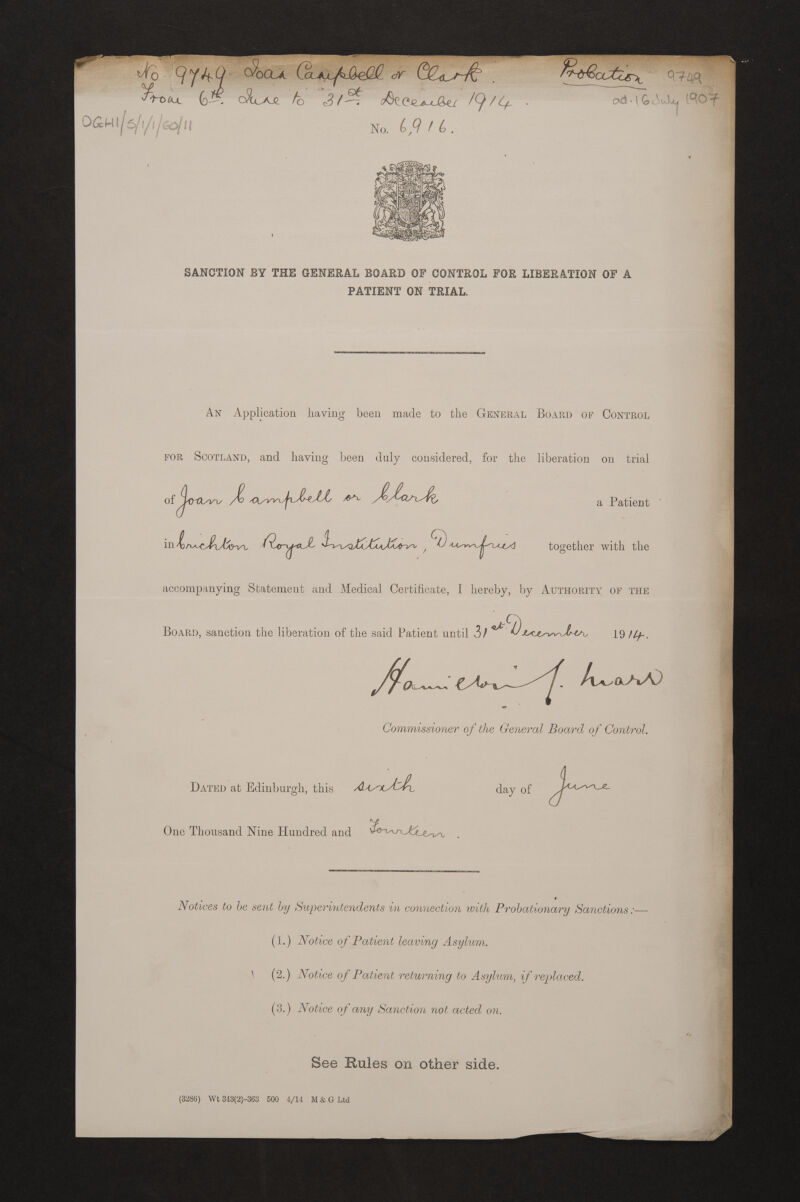 No 9749 Joan Campbell or Clark. Probation 9749
From 6th June to 31st December 1914. ad. 16 July 1907
DGH1/5/1/1/60/11
No. 6,916.
SANCTION BY THE GENERAL BOARD OF CONTROL FOR LIBERATION OF A
PATIENT ON TRIAL.
AN Application having been made to the GENERAL BOARD OF CONTROL
FOR SCOTLAND, and having been duly considered, for the liberation on trial
of Joan Campbell or Clark a Patient
in Crichton Royal Institution, Dumfries together with the
accompanying Statement and Medical Certificate, I hereby, by AUTHORITY OF THE
BOARD, sanction the liberation of the said Patient until 31st December 1914.
Hamilton C. Marr
Commissioner of the General Board of Control.
DATED at Edinburgh, this sixth day of June
One Thousand Nine Hundred and Fourteen.
Notices to be sent by Superintendents in connection with Probationary Sanctions:—
(1.) Notice of Patient leaving Asylum.
(2.) Notice of Patient returning to Asylum, if replaced.
(3.) Notice of any Sanction not acted on.
See Rules on other side.
(3286) Wt 343(2)-363 500 4/14 M & G Ltd